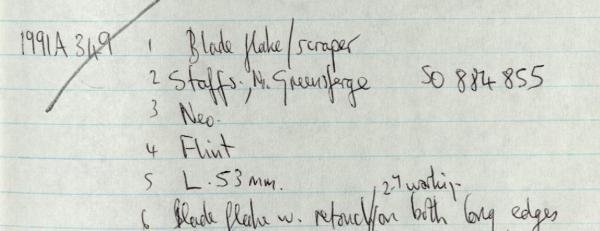 1991A 349 1 Blade flake/scraper
2 Staffs., Nr. Greensforge SO 884 855
3 Neo.
4 Flint
5 L. 53 mm.
6 Blade flake w. retouch/on both long edges